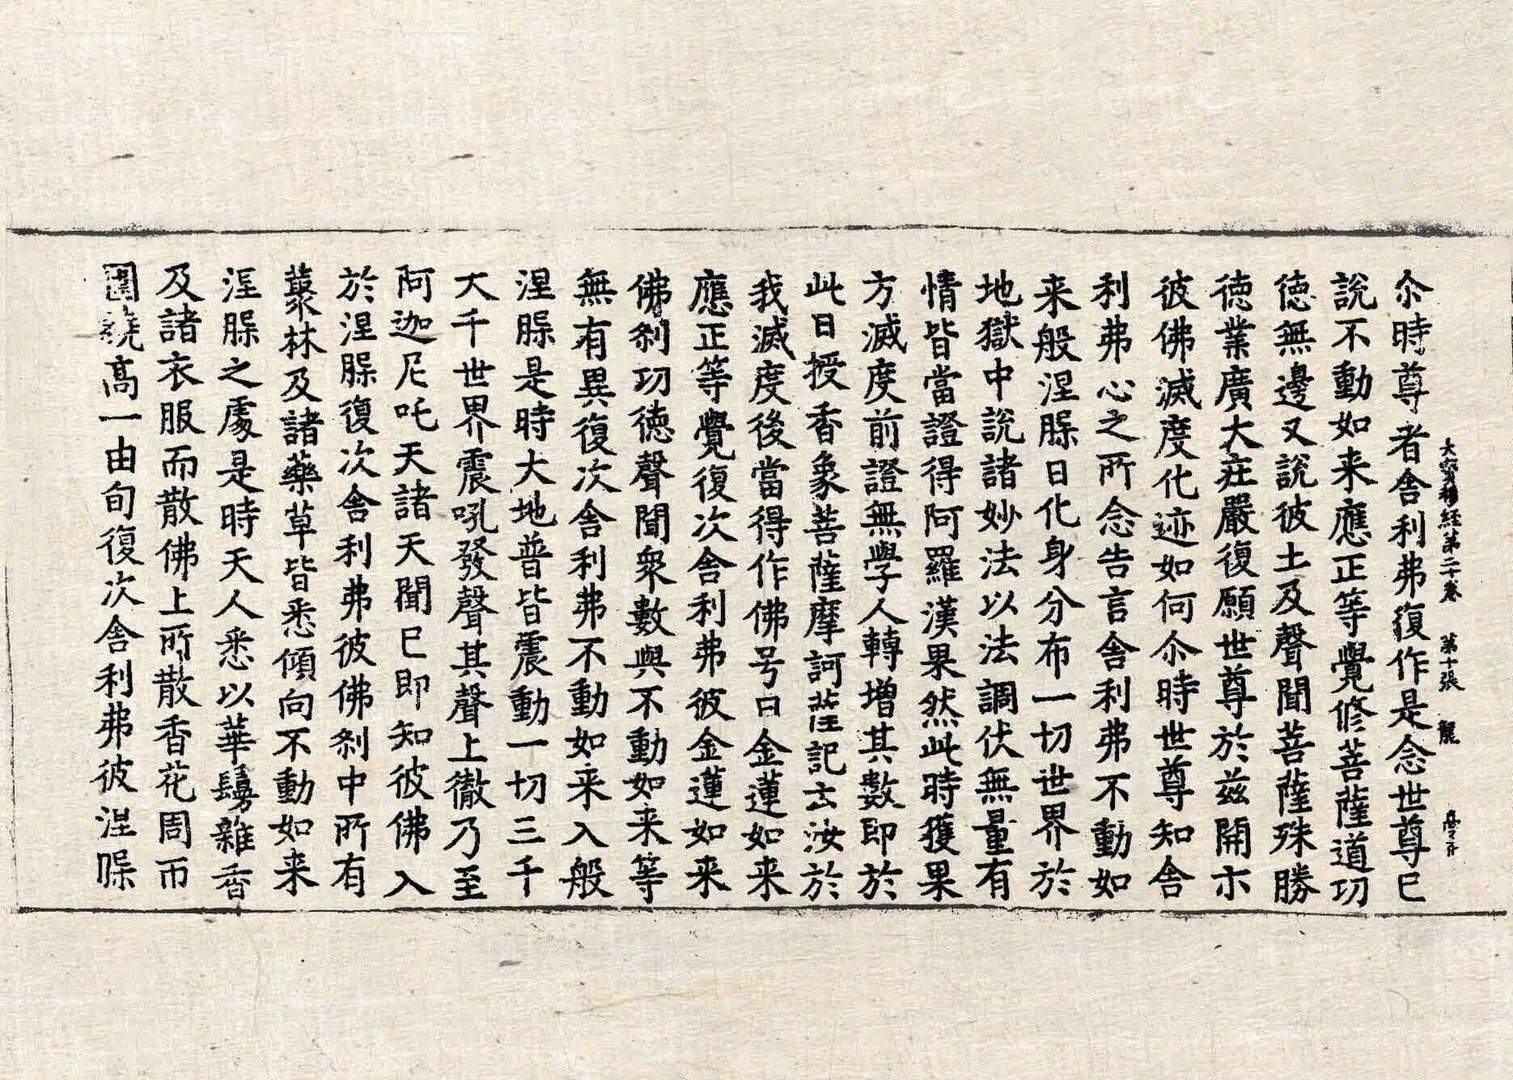 大寶積經第二十卷 第十張 龍
尒時尊者舍利弗復作是念世尊已
說不動如来應正等覺修菩薩道功
徳無邊又說彼土及聲聞菩薩殊勝
徳業廣大莊嚴復願世尊於兹開示
彼佛滅度化迹如何尒時世尊知舍
利弗心之所念告言舍利弗不動如
来般涅腺日化身分布一切世界於
地獄中說諸妙法以法調伏無量有
情皆當證得阿羅漢果然此時獲果
方滅度前證無學人轉增其數即於
此日授香象菩薩摩訶薩記言汝於
我滅度後當得作佛号曰金蓮如来
應正等覺復次舍利弗彼金蓮如来
佛刹功徳聲聞衆數與不動如来等
無有異復次舍利弗不動如来入般
涅腺是時大地普皆震動一切三千
大千世界震吼發聲其聲上徹乃至
阿迦尼吒天諸天聞已即知彼佛入
於涅腺復次舍利弗彼佛刹中所有
藂林及諸藥草皆悉傾向不動如来
涅腺之處是時天人悉以華鬘雜香
及諸衣服而散佛上所散香花周帀
圍繞高一由旬復次舍利弗彼涅腺